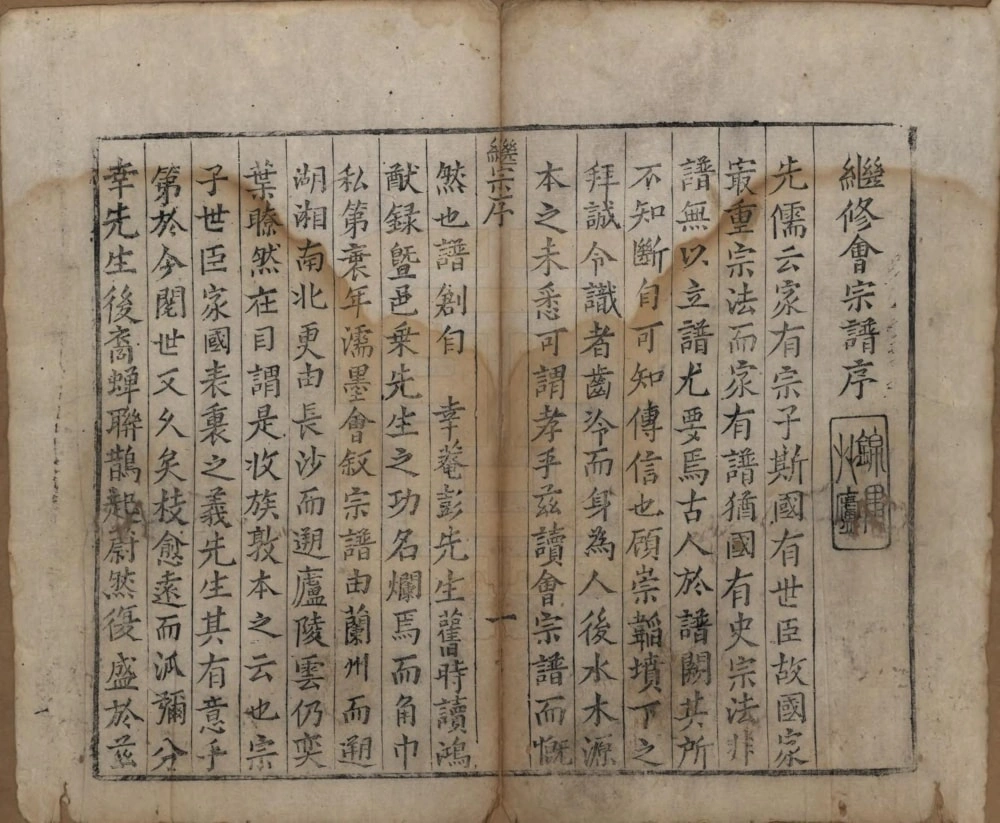 繼修會宗譜序
先儒云家有宗子斯國有世臣故國家
最重宗法而家有譜猶國有史宗法非
譜無以立譜尤要焉古人於譜闕其所
不知斷自可知傳信也顧崇韜墳下之
拜誠令識者齒冷而身為人後水木源
本之未悉可謂孝乎茲讀會宗譜而慨
繼宗序
一
然也譜創自 幸菴彭先生舊時讀鴻
猷録曁邑乗先生之功名爛焉而角巾
私第衰年濡墨會叙宗譜由蘭州而遡
湖湘南北更由長沙而遡廬陵雲仍奕
葉瞭然在目謂是收族敦本之云也宗
子世臣家國表裏之義先生其有意乎
第於今閱世又久矣枝愈遠而派彌分
幸先生後裔蟬聯鵲起蔚然復盛於茲